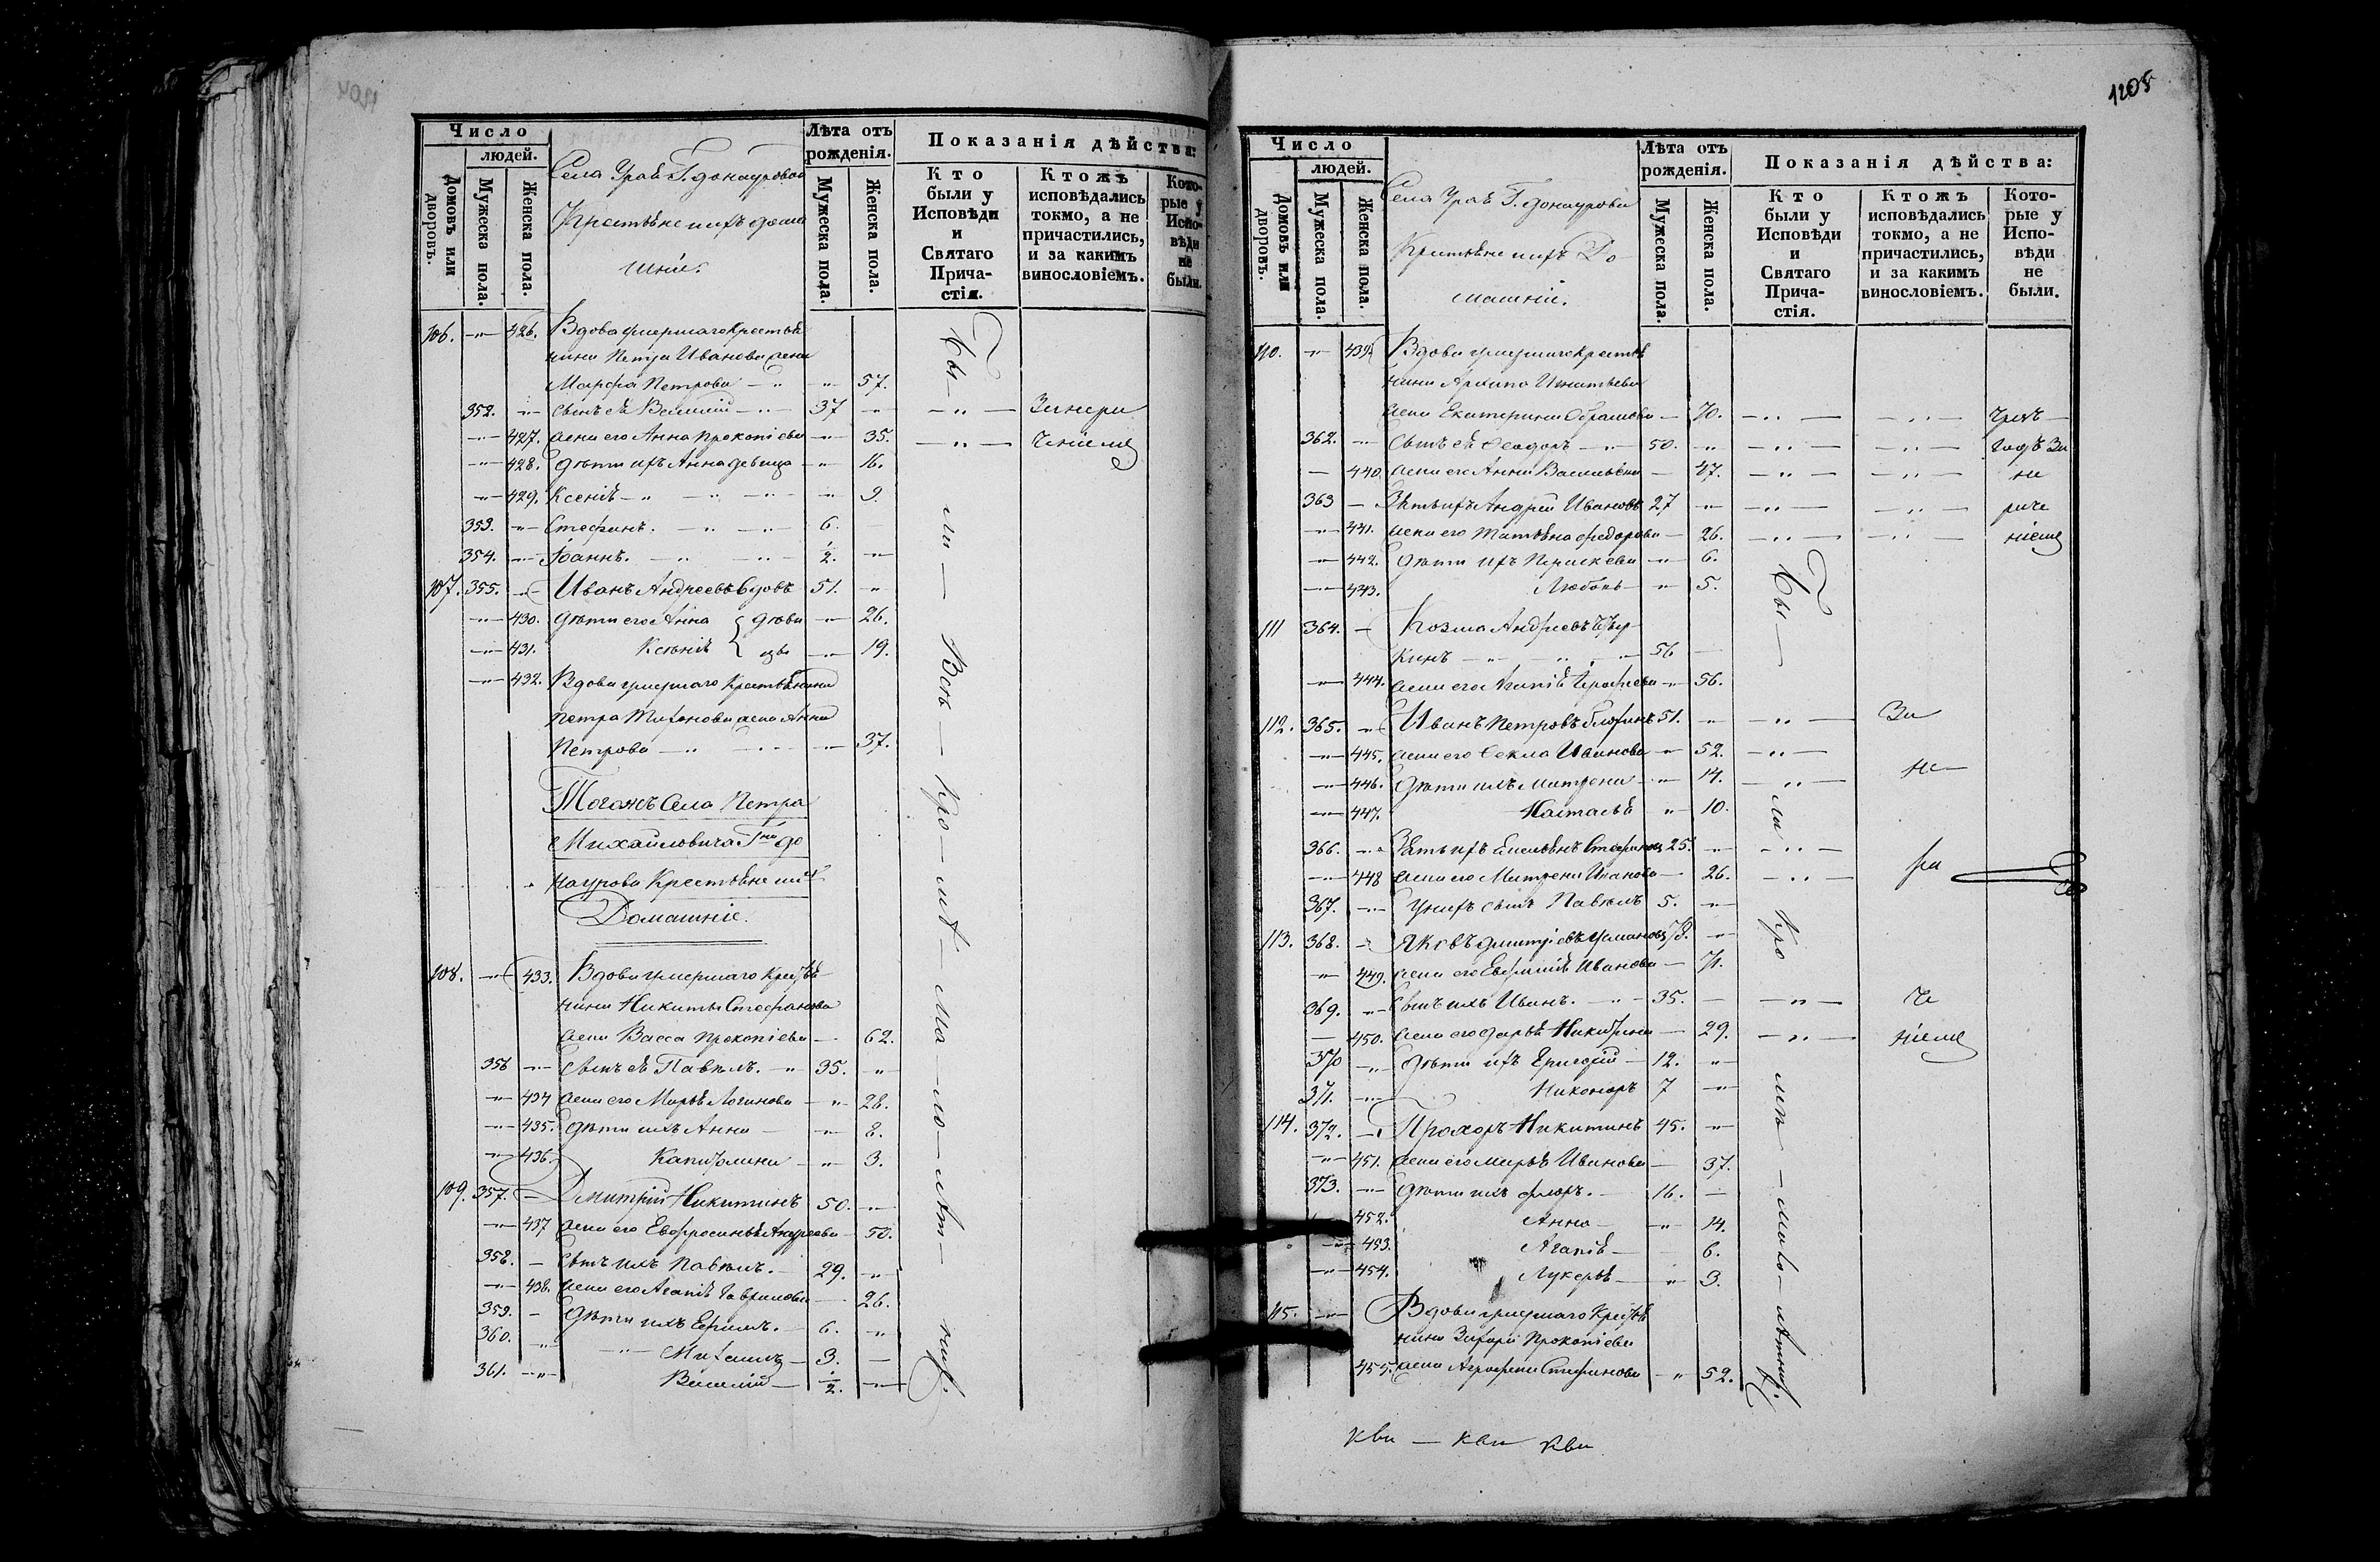 Число
людей.
Домовъ или дворовъ.
Мужеска пола.
Женска пола.
Села Урай Г. Донауровой
Крестьяне и ихъ дома
шніе.
Лѣта отъ рожденія.
Мужеска пола.
Женска пола.
Показанія дѣйства:
Кто были у Исповѣди и Святаго Причастія.
Ктожъ исповѣдались токмо, а не причастились, и за какимъ винословіемъ.
Которые у Исповѣди не были.
106. 426. Вдова умершаго крестья
нина Петра Иванова жена
Марфа Петрова 57.
352. сынъ ея Василій 37 Занера
427. жена его Анна Прокопіева 35. ченіемъ
428. дѣти ихъ Анна девица 16.
429. Ксенія 9.
353. Стефанъ. 6.
354. Іоаннъ. 2.
107. 355. Иванъ Андреевъ вдовъ 51.
430. дѣти его Анна 26.
431. Ксенія 19.
432. Вдова умершаго крестьянина
Петра жена Анна
Петрова 37.
Тогожъ Села Петра
Михайловича Гна До
наурова Крестьяне и ихъ
Домашніе.
108. 433. Вдова умершаго Крестья
нина Никиты Стефанова
жена Васса Прокопіева 62.
356 сынъ ея Павелъ. 35.
434 жена его Марья Логинова 28.
435. дѣти ихъ Анна 8.
436. Капитолина 3.
109. 357. Дмитрій Никитинъ 50.
437 жена его Евфросинья Андреева 50.
358. сынъ ихъ Павелъ. 29.
438. жена его Агапія Гаврилова 26.
359. дѣти ихъ Ефимъ. 6.
360. Михаилъ 3.
361. Василій 1/2.
Бы ли Всѣ кро мѣ ма ло лѣт нихъ.
1205
Число
людей.
Домовъ или дворовъ.
Мужеска пола.
Женска пола.
Села Урай Г. Донаурова
Крестьяне и ихъ До
машніе.
Лѣта отъ рожденія.
Мужеска пола.
Женска пола.
Показанія дѣйства:
Кто были у Исповѣди и Святаго Причастія.
Ктожъ исповѣдались токмо, а не причастились, и за какимъ винословіемъ.
Которые у Исповѣди не были.
110. 439. Вдова умершаго крестья
нина Архипа Игнатьева
жена Екатерина 70.
362. сынъ ея Ѳеодоръ 50. годъ За
440. жена его Анна Васильева 47. не
363 Зять ихъ Андрей Ивановъ 27 раче
441. жена его Татьяна Федорова 26. ніемъ
442. дѣти ихъ Параскева 6.
443. Любовь 5.
111 364. Козма Андреевъ
кинъ 56
444. жена его Агапія 56.
112. 365. Иванъ Петровъ 51. За
445. жена его Ѳекла Иванова 52.
446. дѣти ихъ Матрена 14. не
447. Наталья 10.
366. Зять ихъ Стефановъ 25. ра
448 жена его Матрена Иванова 26.
367. У нихъ сынъ Павелъ 5.
113. 368. Яковъ Дмитріевъ 78.
449. жена его Евфимія Иванова 71.
369. сынъ ихъ Иванъ. 35. че
450. жена его Дарья 29. ніемъ
370 дѣти ихъ 12.
371. Никоноръ 7
114. 372. Прохоръ Никитинъ 45.
451. жена его Марья Иванова 37.
373. дѣти ихъ Флоръ. 16.
452. Анна 14.
453. Агапія 6.
454. Лукерья 3.
115. Вдова умершаго Крестья
нина Захара Прокопіева
455. жена Агрофена Стефанова 52.
Бы ли кро мѣ мало лѣтнихъ.